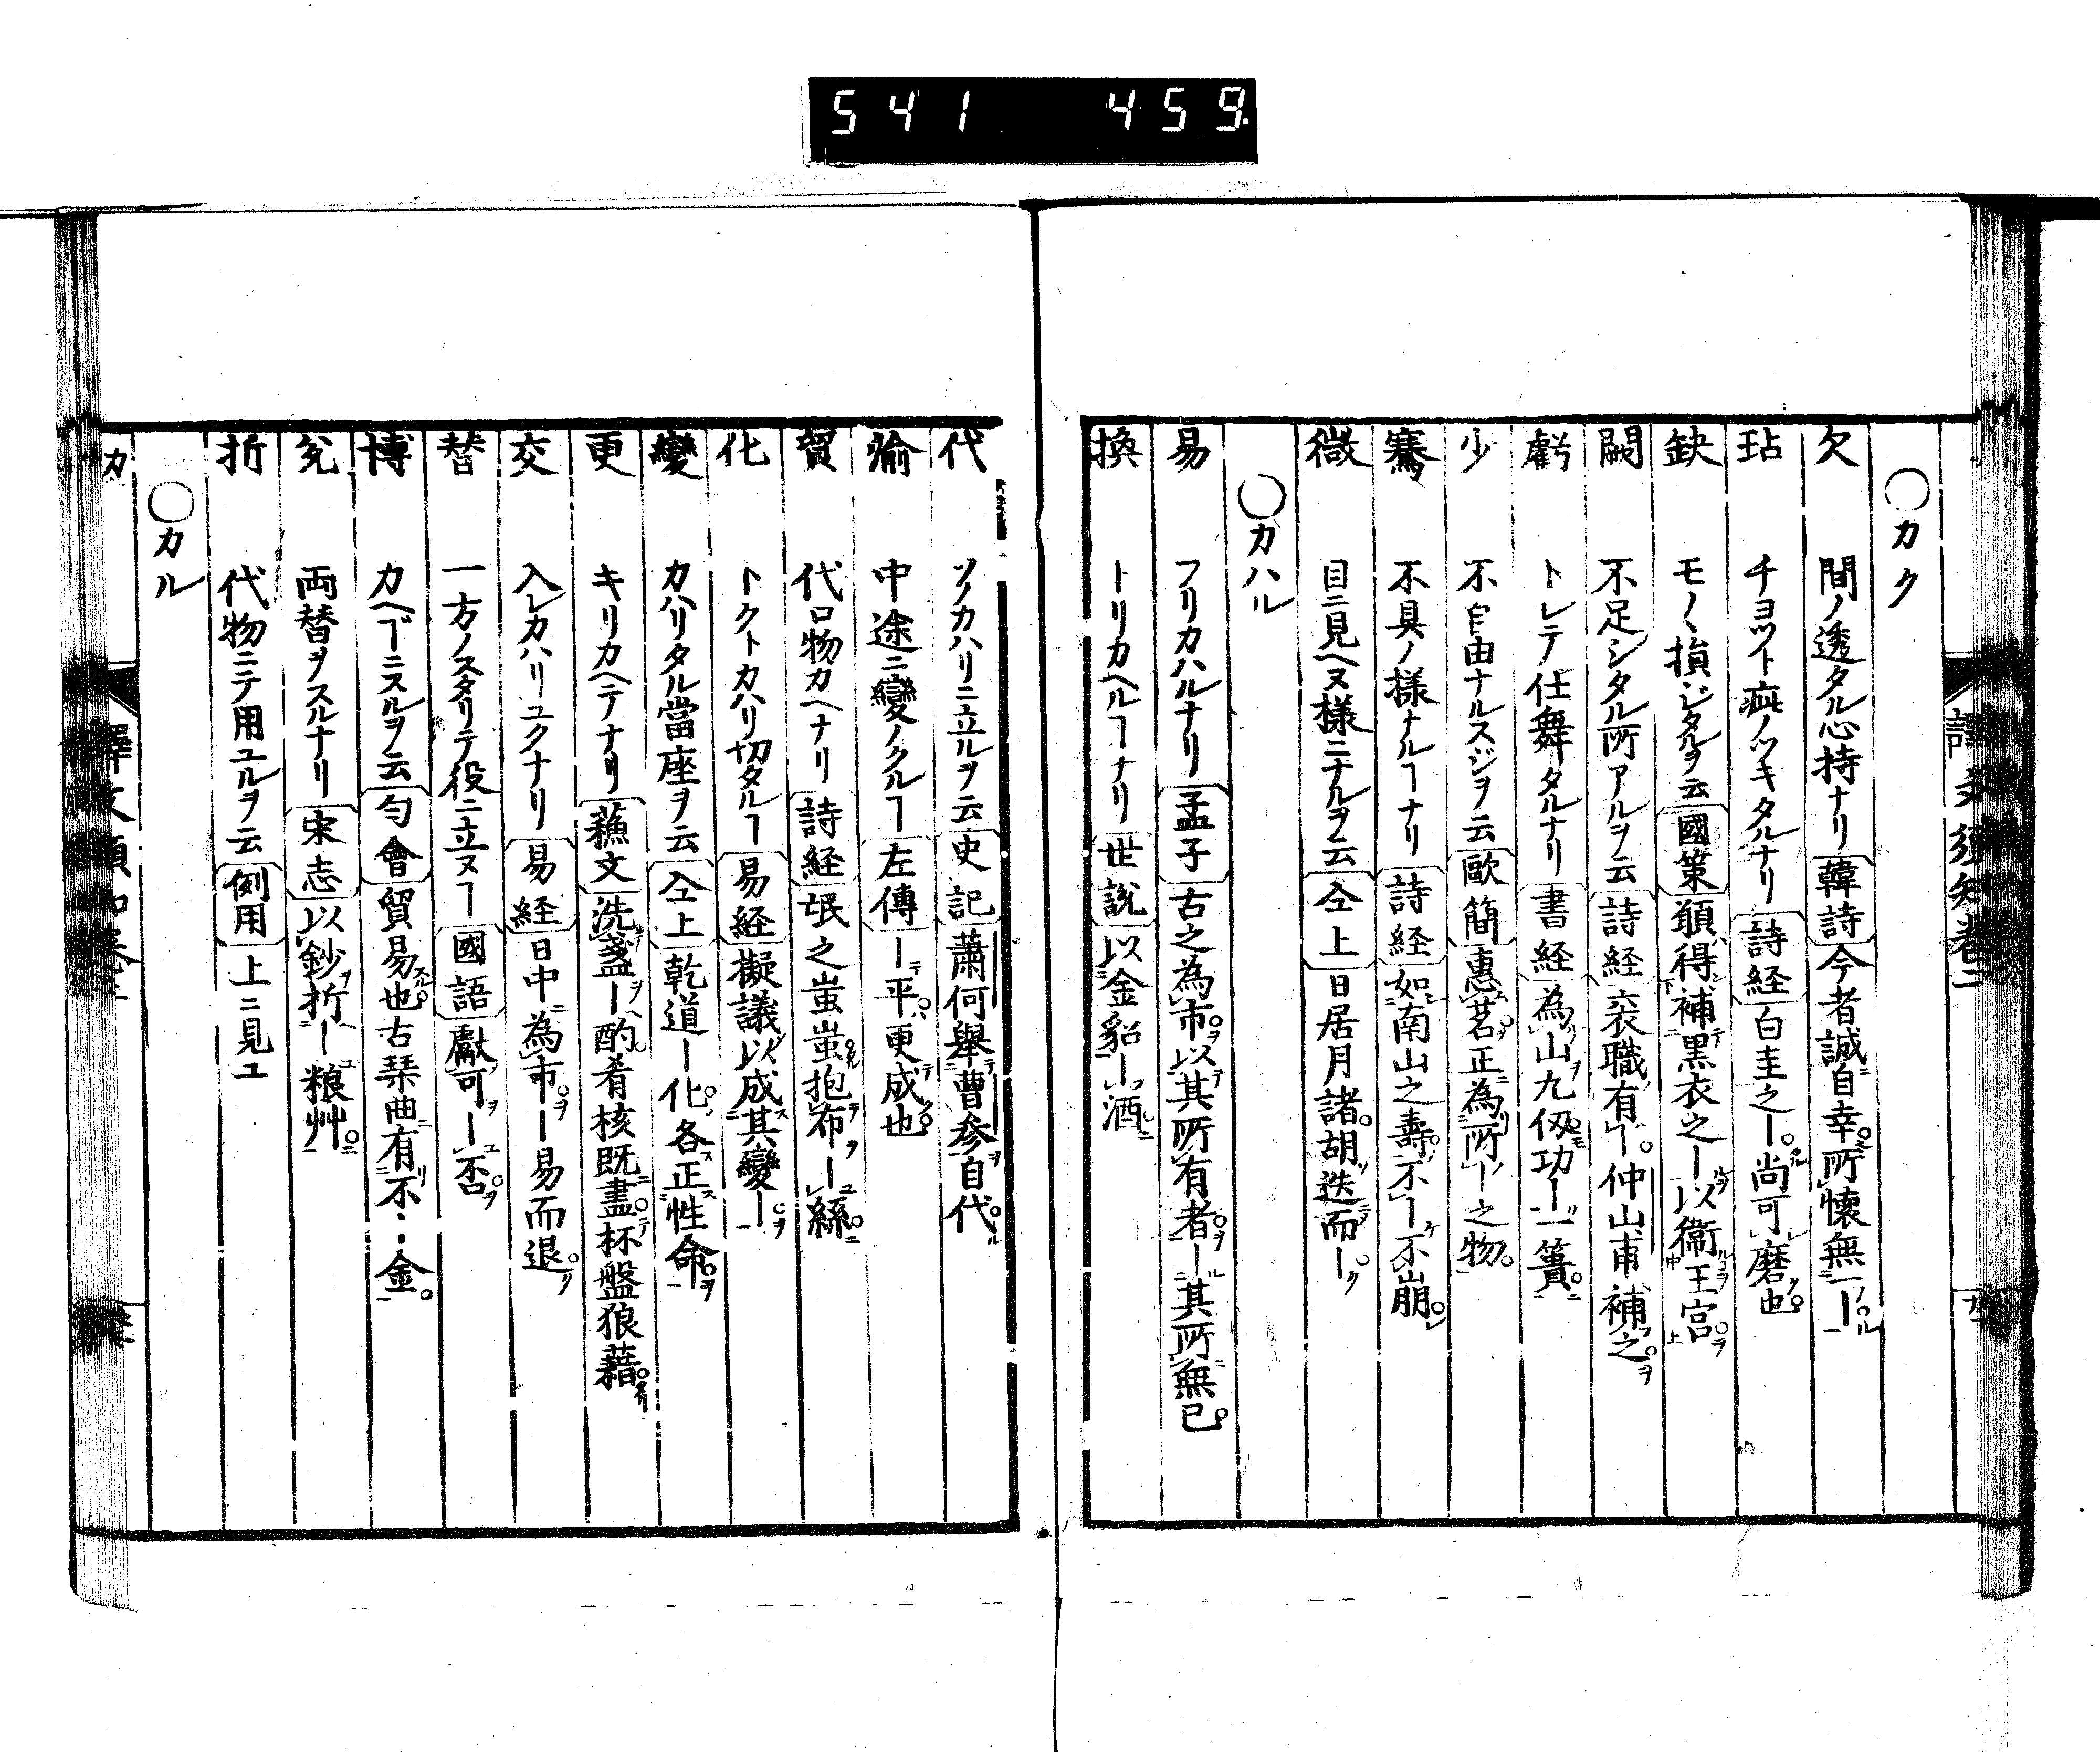 541 459.
○カク
欠 間ノ透タル心持ナリ 韓詩 今者誠自幸所懷無一ー
玷 チヨツト疵ノツキタルナリ 詩経 白圭之ー尚可磨也
缺 モノヽ損ジタルヲ云 國策 願得補黒衣之ー以衞王宮
闕 不足シタル所アルヲ云 詩経 衮職有ー仲山甫補之
虧 トレテ仕舞タルナリ 書経 為山九仭功ー一簣
少 不自由ナルスジヲ云 歐簡 惠茗正為所ー之物
騫 不具ノ様ナルヿナリ 詩経 如南山之壽不ー不崩
微 目ニ見ヘヌ様ニナルヲ云 仝上 日居月諸胡迭而ー
○カハル
易 フリカハルナリ 孟子 古之為市以其所有者ー其所無已
換 トリカヘルヿナリ 世説 以金貂ー酒
代 ソノカハリニ立ルヲ云 史記 蕭何舉曹参自代
渝 中途ニ變ノクルヿ 左傳 ー平更成也
貿 代口物カヘナリ 詩経 氓之蚩蚩抱布ー絲
化 トクトカハリ切タルヿ 易経 擬議以成其變ー
變 カハリタル當座ヲ云 仝上 乾道ー化各正性命
更 キリカヘテナリ 蘓文 洗盞ー酌肴核既盡杯盤狼藉
交 入レカハリユクナリ 易経 日中為市ー易而退
替 一方ノスタリテ役ニ立ヌヿ 國語 獻可ー否
博 カヘ下ニスルヲ云 匀會 貿易也古琴曲有不ーー金
兌 両替ヲスルナリ 宋志 以鈔折ー粮艸
折 代物ニテ用ユルヲ云 例用 上ニ見ユ
○カル